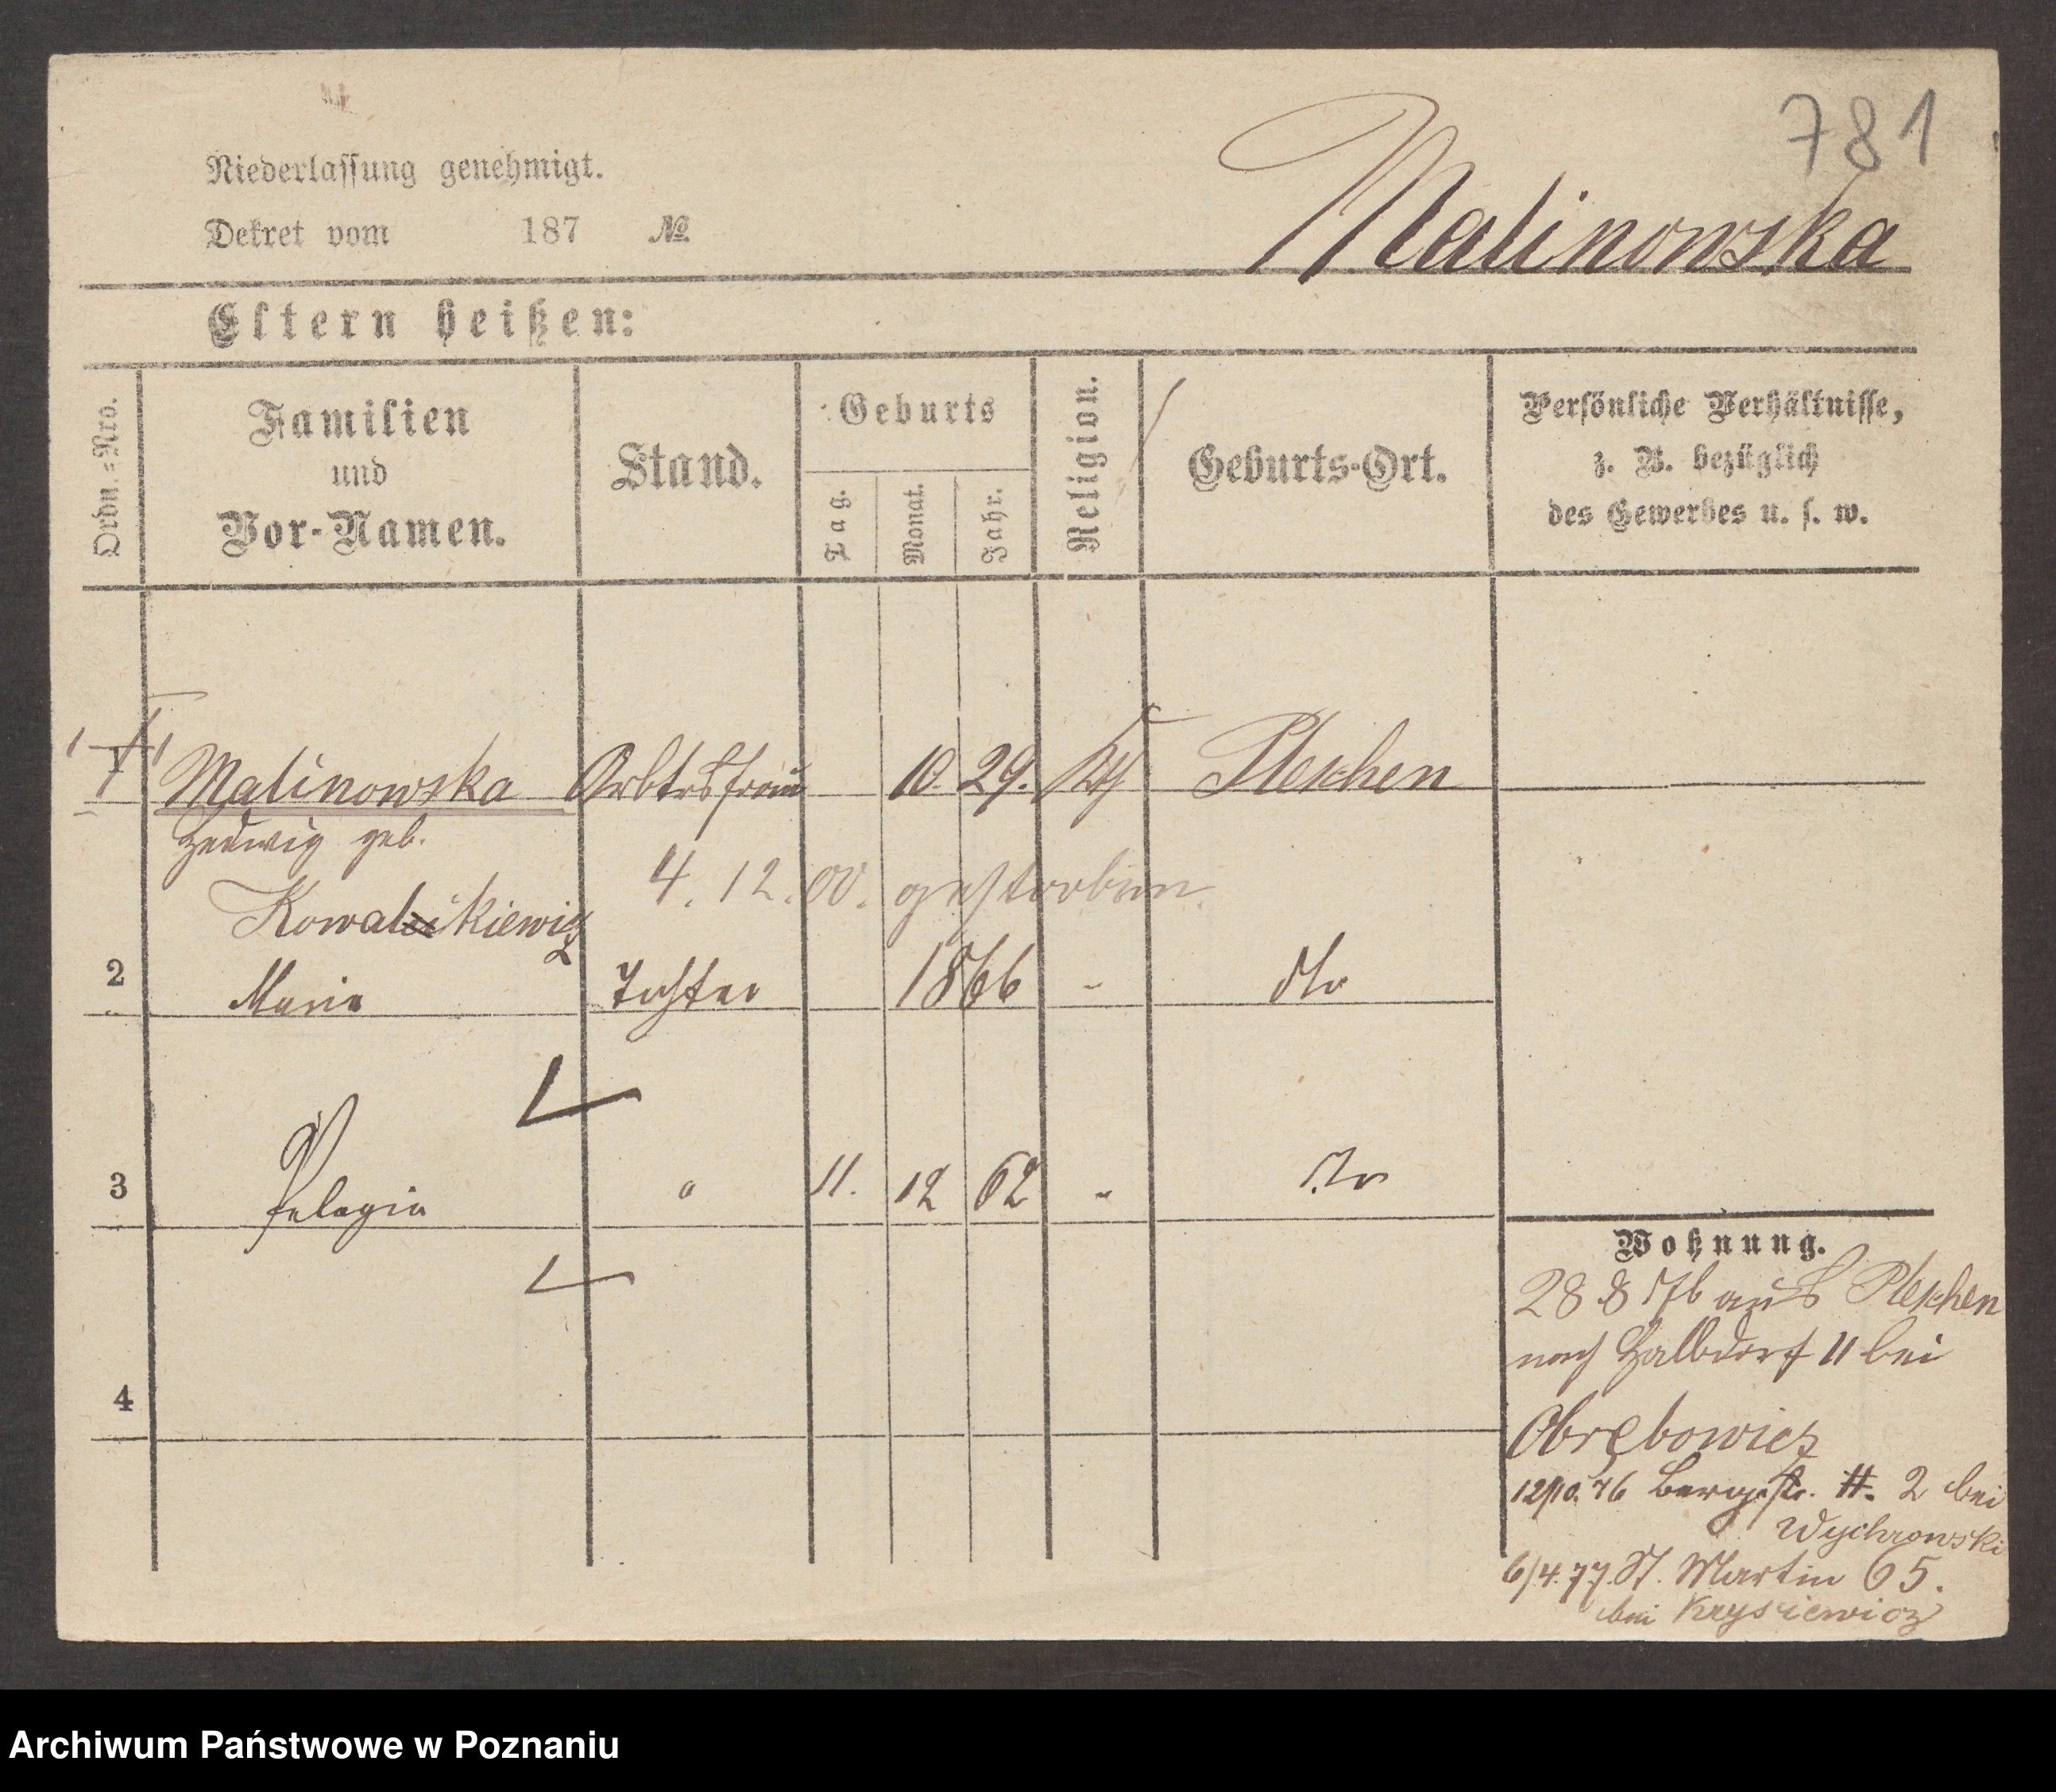 781
Niederlassung genehmigt.
Dekret vom 187 №
Malinowska
Eltern heißen:
Ordn.=Nro.
Familien
und
Vor-Namen.
Stand.
Geburts
Tag.
Monat.
Jahr.
Religion.
Geburts-Ort.
Persönliche Verhältnisse,
z. B. bezüglich
des Gewerbes u. s. w.
1 Malinowska Arbtrsfrau 10. 29. Kth Pleschen
Hedwig geb.
4. 12. 00. gestorben.
2 Maria Tochter 1866 - dto
3 Pelagia " 11. 12 62 " dto
4
Wohnung.
28 8 76 aus Pleschen
nach Halbdorf 11 bei
Obrębowicz
12/10. 76 Bergstr. 2 bei
Wychrowski
6/4. 77. St. Martin 65.
bei Krysiewicz
Archiwum Państwowe w Poznaniu